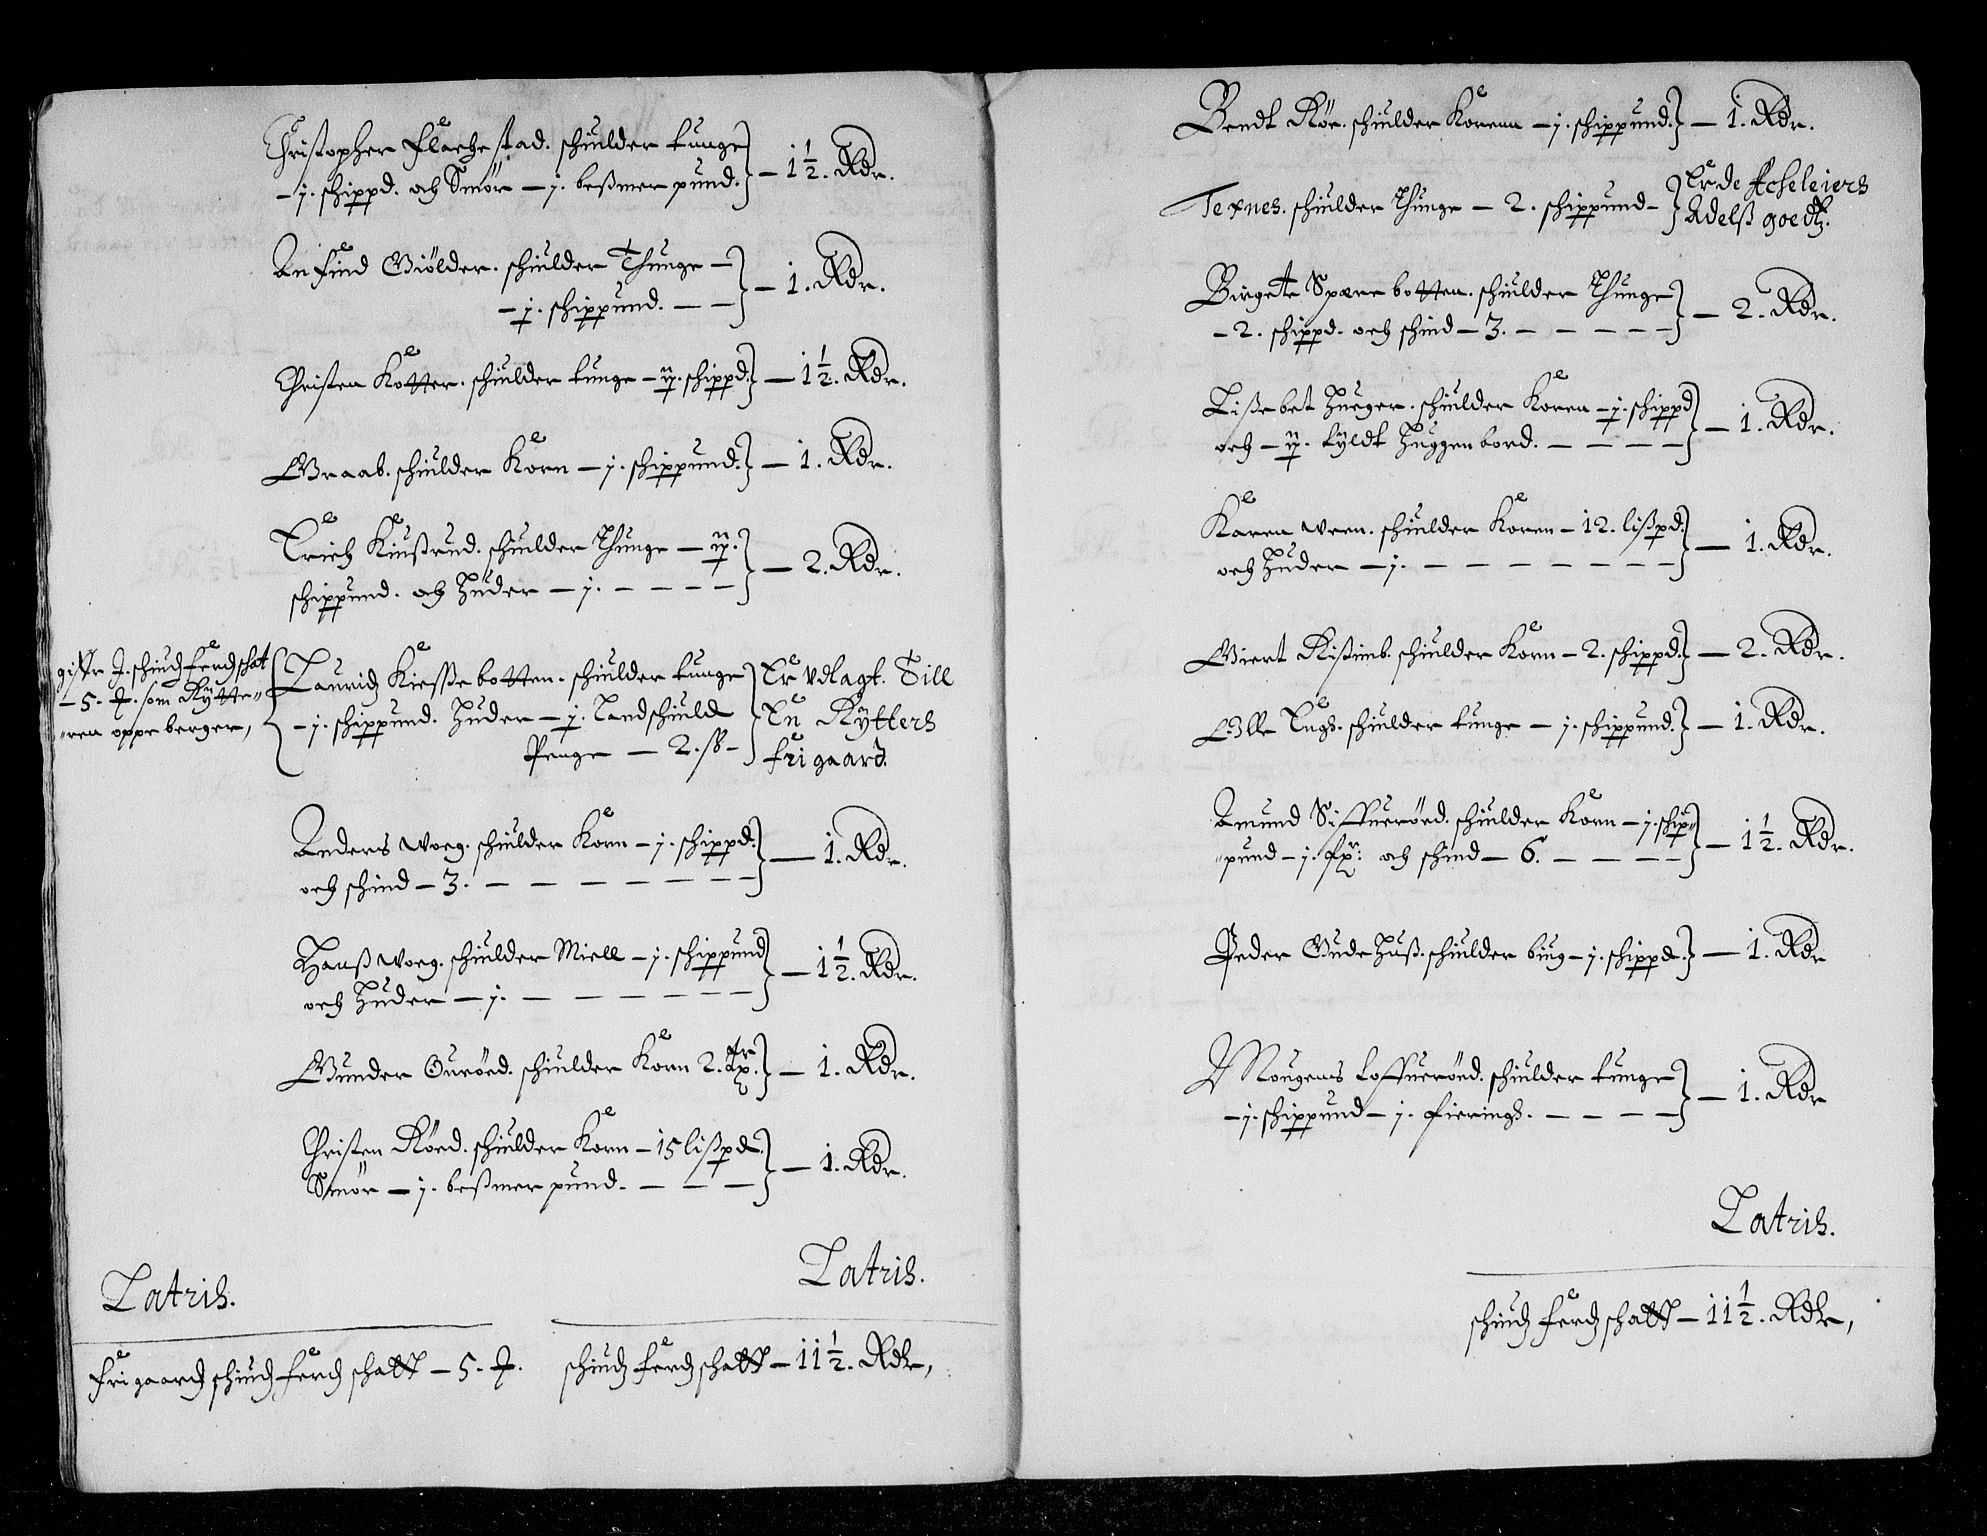 Christopher Flachestad. schiulder tunge
– j. schippd. och Smör – j. beßmer pund. } – 1½. Rdr.
Anfind Giölder. schiulder Thunge –
– j. schippund. – – } – 1. Rdr.
Christen Kotter. schiulder tunge – ij. schippd. } – 1½. Rdr.
Graab. schiulder Korn – j. schippund. } – 1. Rdr.
Erich Kiustrud. schiulder Thunge – ij.
schippund. och Huder – j. – – – – } – 2. Rdr.
giffr J. schind ferd schat
– 5. ₰. som Rytte-
-ren oppe berger,
Lauridz Kiesse botten. schiulder tunge } Er Vdlagt. Till
– j. schippund. Huder – j. Landschiuld } En Rytters
Penge – 2. ß – } fri gaard.
Anders Woeg. schiulder Korn – j. schippd.
och schind – 3. – – – – – – – } – 1. Rdr.
Hanß Woeg. schiulder Miell – j. schippund
och Huder – j. – – – – – – } – 1½. Rdr.
Gunder Ouröed. schiulder Korn 2. } – 1. Rdr.
Christen Röed. schiulder Korn – 15 lißpd.
Smör – j. beßmer pund. – – – } – 1. Rdr.
Latris.
Latris.
frigaardz schindz ferdz schatt – 5. ₰.
schindz ferdz schatt – 11½. Rdr,
Bendt Röe. schiulder Koren – j. schippund. } – 1. Rdr.
Texnes. schiulder Thunge – 2. schippund – } Er de Acheleiers
Adelß goedtz.
Birgete Spare botten. schiulder Thunge
– 2. schippd. och schind – 3. – – – – – } – 2. Rdr.
Lißebet Hueger. schiulder Koren – j. schippd
och – ij. tyldt Huggenbord. – – – – } – 1. Rdr.
Karen Wren. schiulder Koren – 12. lißpd.
och Huder – j. – – – – – – – – } – 1. Rdr.
Giert Rißimb. schiulder Korn – 2. schippd. } – 2. Rdr.
Olle Engs. schiulder tunge – j. schippund. } – 1. Rdr.
Amund Siffueröed. schiulder Korn – j. schip-
-pund – j. och schind – 6. – – – – } – 1½. Rdr.
Peder Gude Huß. schiulder biug – j. schippd. } – 1. Rdr
Mougens Loffueröed. schiulder tunge
– j. schippund – j. fierings. – – – – } – 1. Rdr
Latris.
schindz ferdz schatt – 11½. Rdr,